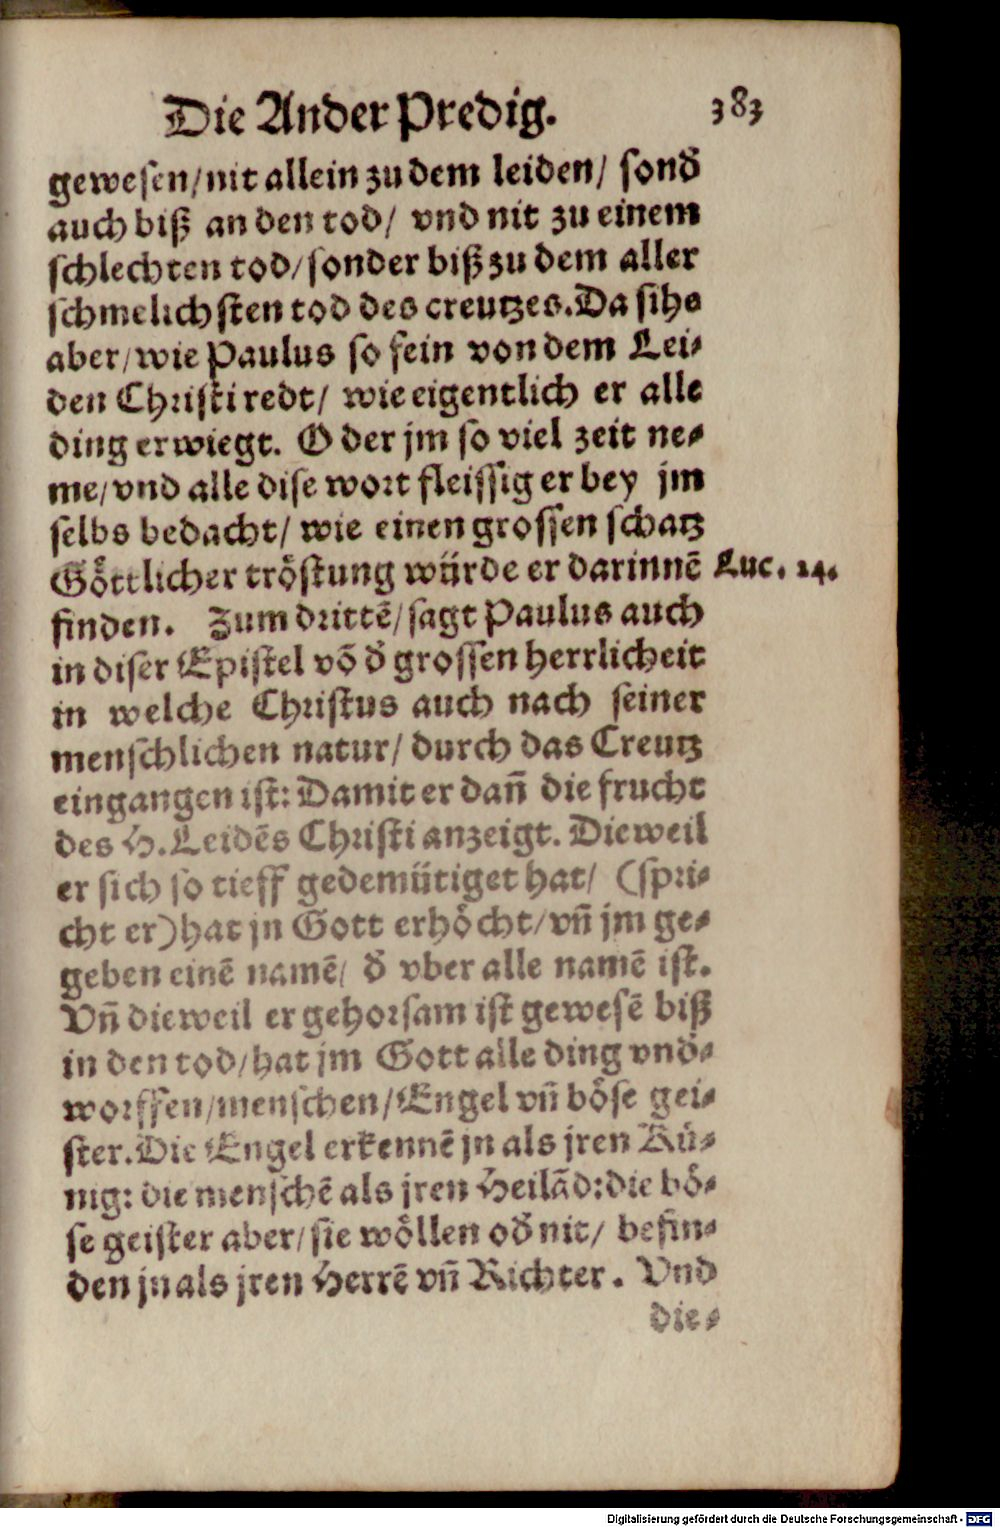 Die Ander Predig. 383
gewesen/nit allein zu dem leiden/ sond̕
auch biß an den tod/ vnd nit zu einem
schlechten tod/sonder biß zu dem aller
schmelichsten tod des creutzes. Da sihe
aber/wie Paulus so fein von dem Lei-
den Christi redt/ wie eigentlich er alle
ding erwiegt. O der jm so viel zeit ne-
me/vnd alle dise wort fleissig er bey jm
selbs bedacht/ wie einen grossen schatz
Göttlicher tröstung würde er darinnē Luc. 24.
finden. Zum drittē/sagt Paulus auch
in diser Epistel vō d̕ grossen herrlicheit
in welche Christus auch nach seiner
menschlichen natur/ durch das Creutz
eingangen ist: Damit er dañ die frucht
des H. Leidēs Christi anzeigt. Dieweil
er sich so tieff gedemütiget hat/ (spri-
cht er) hat jn Gott erhöcht/vñ jm ge-
geben einē namē/ d̕ vber alle namē ist.
Vñ dieweil er gehorsam ist gewesē biß
in den tod/hat jm Gott alle ding vnd̕-
worffen/menschen/Engel vñ böse gei-
ster. Die Engel erkennē jn als jren Kü-
nig: die menschē als jren Heilād: die bö-
se geister aber/sie wöllen od̕ nit/ befin-
den jn als jren Herrē vñ Richter. Vnd
die-
Digitalisierung gefördert durch die Deutsche Forschungsgemeinschaft - DFG